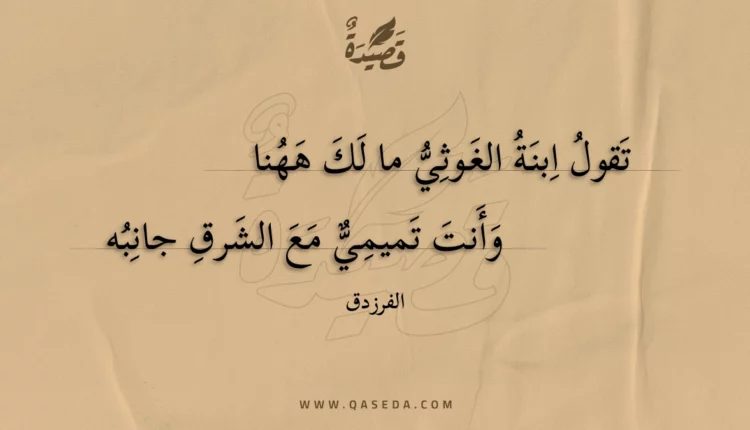 قَصِيدَةٌ
تَقولُ اِبنَةُ الغَوثِيُّ ما لَكَ هَهُنا
وَأَنتَ تَميمِيٌّ مَعَ الشَرقِ جانِبُه
الفرزدق
WWW.QASEDA.COM